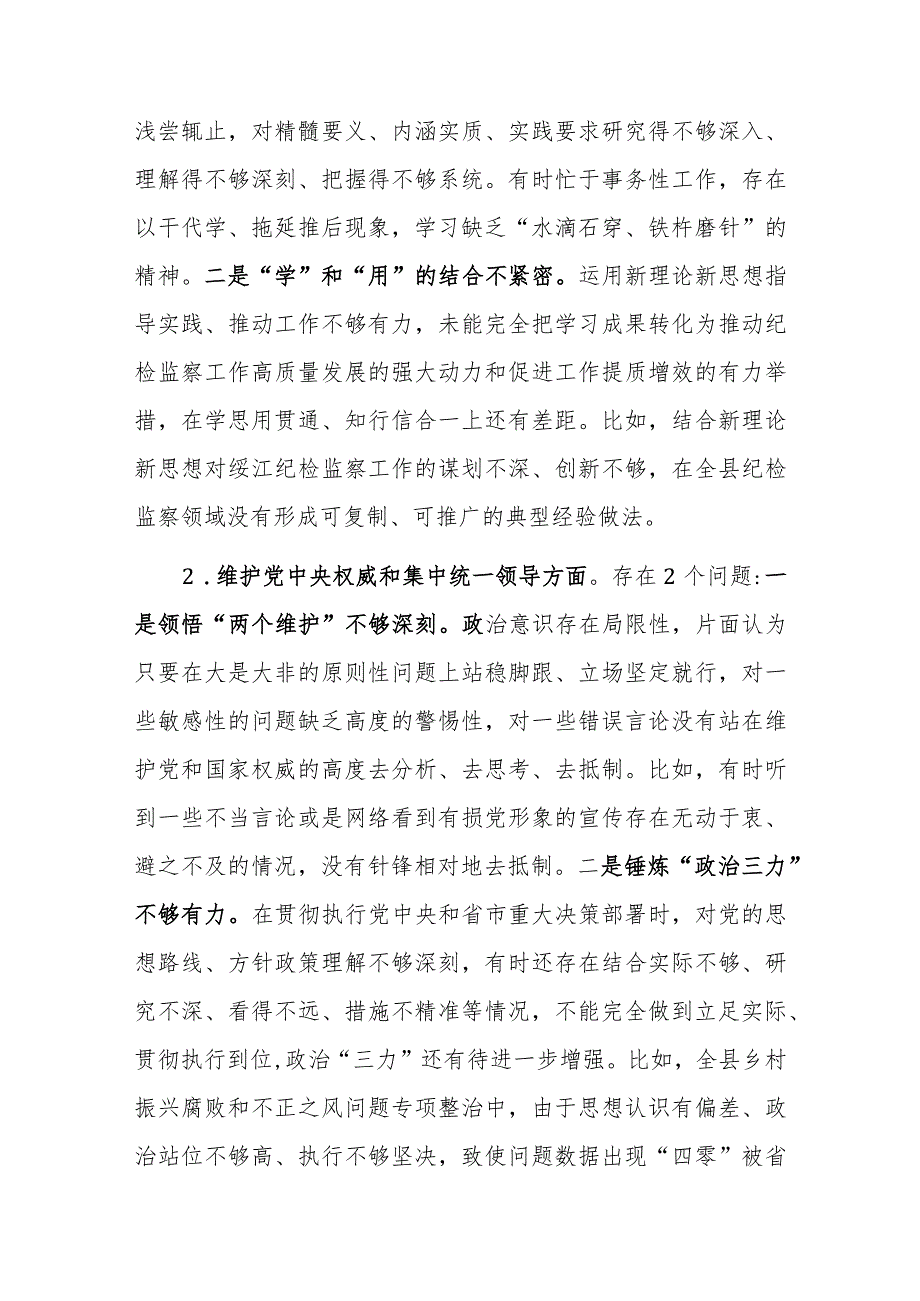 浅尝辄止，对精髓要义、内涵实质、实践要求研究得不够深入、
理解得不够深刻、把握得不够系统。有时忙于事务性工作，存在
以干代学、拖延推后现象，学习缺乏“水滴石穿、铁杵磨针”的
精神。二是“学”和“用”的结合不紧密。运用新理论新思想指
导实践、推动工作不够有力，未能完全把学习成果转化为推动纪
检监察工作高质量发展的强大动力和促进工作提质增效的有力举
措，在学思用贯通、知行信合一上还有差距。比如，结合新理论
新思想对绥江纪检监察工作的谋划不深、创新不够，在全县纪检
监察领域没有形成可复制、可推广的典型经验做法。
2 .维护党中央权威和集中统一领导方面。存在 2 个问题:一
是领悟“两个维护”不够深刻。政治意识存在局限性，片面认为
只要在大是大非的原则性问题上站稳脚跟、立场坚定就行，对一
些敏感性的问题缺乏高度的警惕性，对一些错误言论没有站在维
护党和国家权威的高度去分析、去思考、去抵制。比如，有时听
到一些不当言论或是网络看到有损党形象的宣传存在无动于衷、
避之不及的情况，没有针锋相对地去抵制。二是锤炼“政治三力”
不够有力。在贯彻执行党中央和省市重大决策部署时，对党的思
想路线、方针政策理解不够深刻，有时还存在结合实际不够、研
究不深、看得不远、措施不精准等情况，不能完全做到立足实际、
贯彻执行到位,政治“三力”还有待进一步增强。比如，全县乡村
振兴腐败和不正之风问题专项整治中，由于思想认识有偏差、政
治站位不够高、执行不够坚决，致使问题数据出现“四零”被省